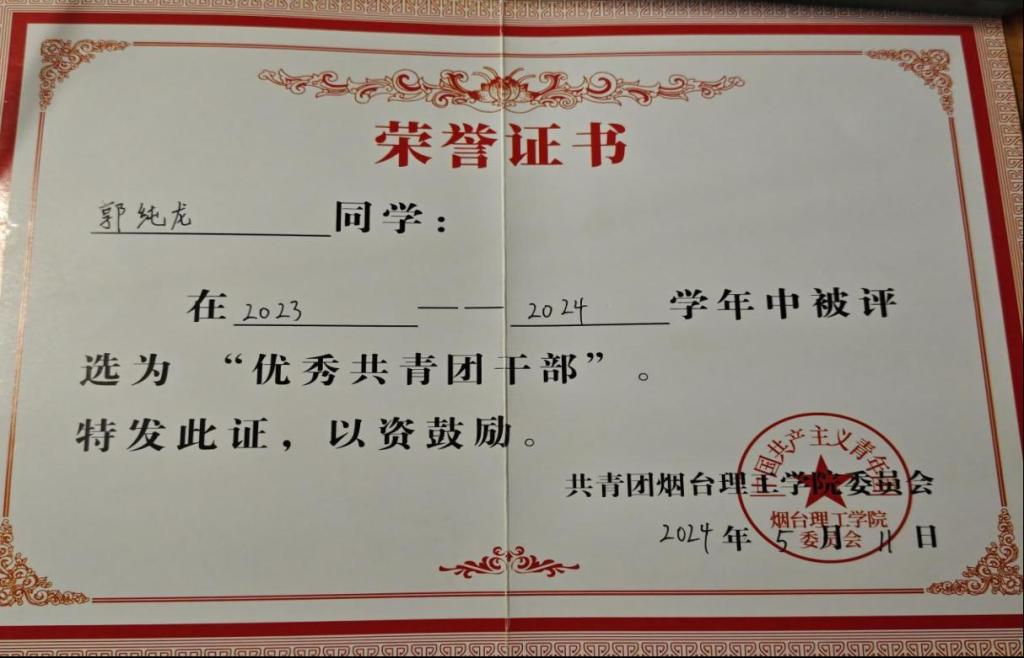 荣誉证书
郭纯龙同学：
在2023——2024学年中被评
选为“优秀共青团干部”。
特发此证，以资鼓励。
共青团烟台理工学院委员会
2024年5月11日
中国共产主义青年团
烟台理工学院
委员会